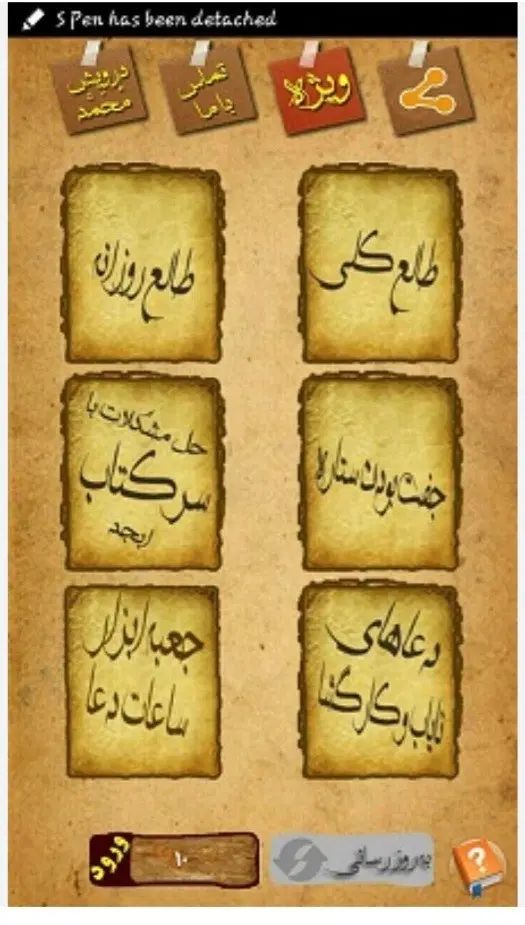 S Pen has been detached
ویژه
تماس
با ما
درویش
محمد
طالع کلی
طالع روزانه
جفت بودن ستاره
حل مشکلات با
سر کتاب
ابجد
دعاهای
نایاب و کارگشا
جعبه ابزار
ساعات دعا
به روز رسانی
۱۰
ورود
?